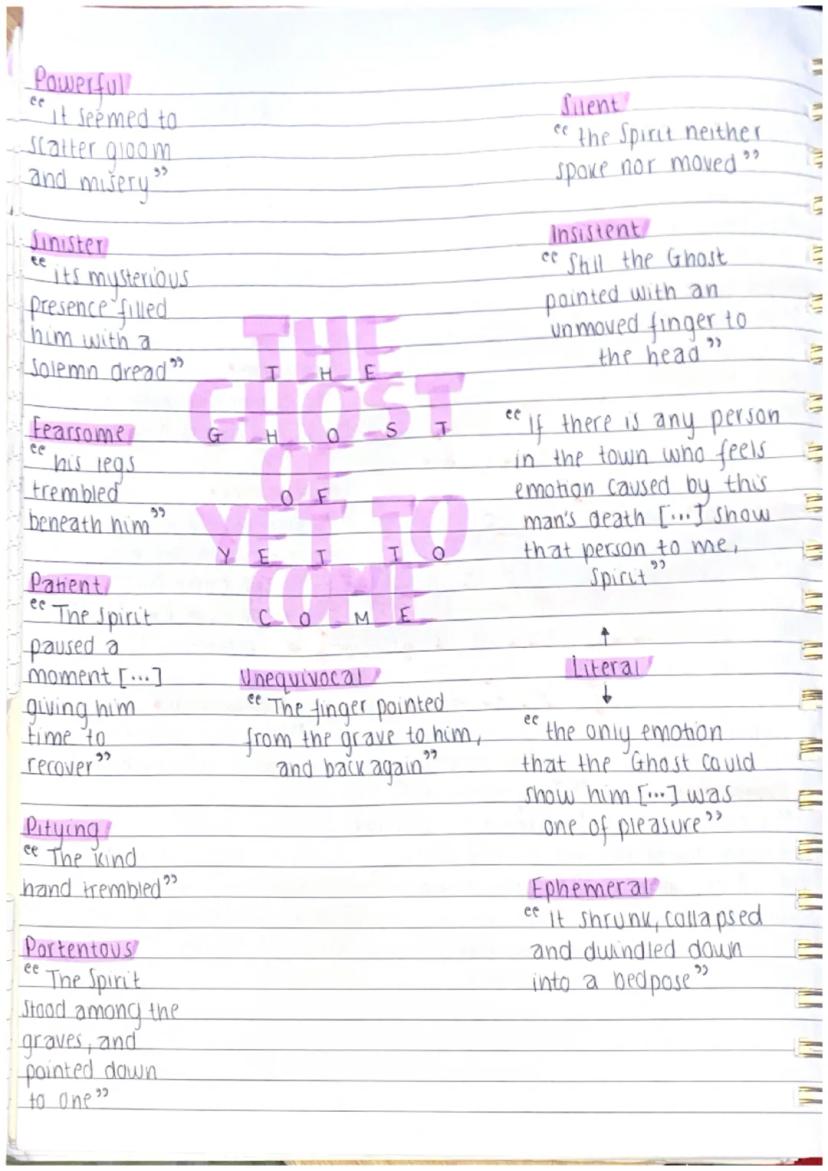 Powerful
"it seemed to
scatter gloom
and misery"
Sinister
"its mysterious
presence filled
him with a
solemn dread"
Fearsome
"his legs
trembled
beneath him"
Patient
"The Spirit
paused a
moment [...]
giving him
time to
recover"
Pitying
"The kind
hand trembled"
Portentous
"The Spirit
stood among the
graves, and
pointed down
to one"
THE
THE
GHOST
GHOST
OF
OF
YET TO
YET TO
COME
COME
Unequivocal
"The finger pointed
from the grave to him,
and back again"
Silent
"the Spirit neither
spoke nor moved"
Insistent
"Still the Ghost
pointed with an
unmoved finger to
the head"
"If there is any person
in the town who feels
emotion caused by this
man's death [...] show
that person to me,
Spirit"
↑
Literal
↓
"the only emotion
that the Ghost could
show him [...] was
one of pleasure"
Ephemeral
"it shrunk, collapsed
and dwindled down
into a bedpose"